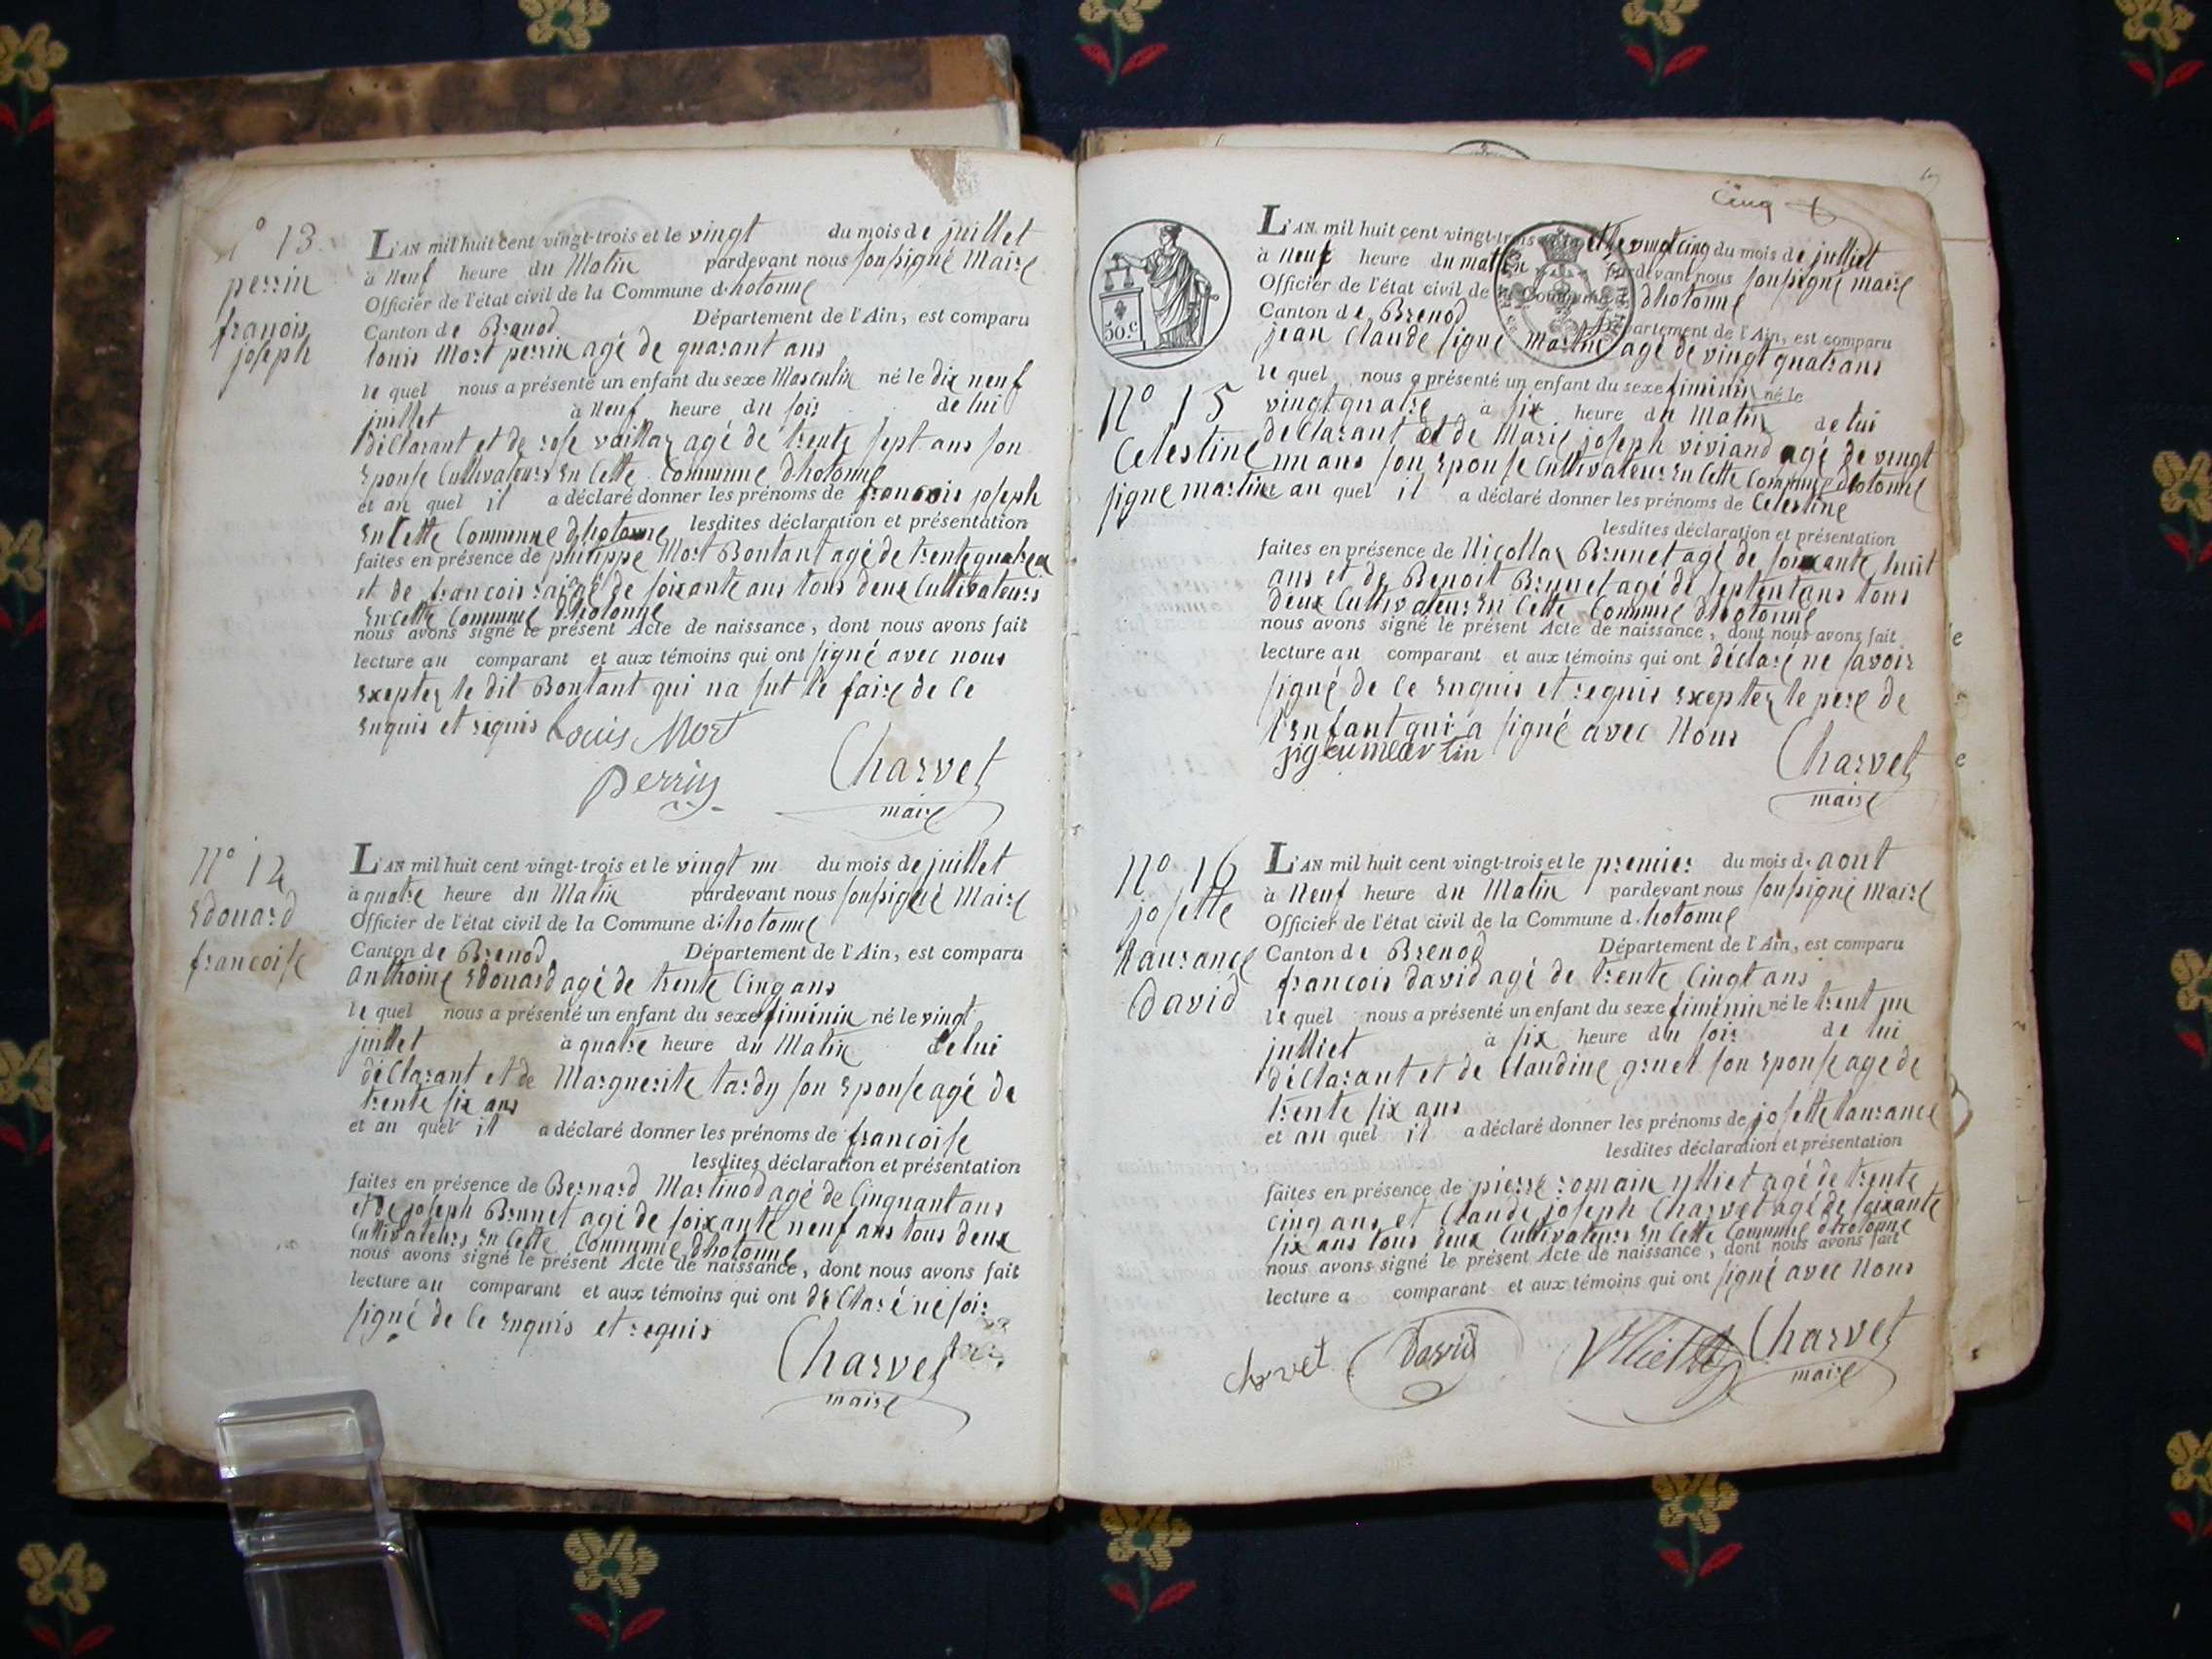 N° 13.
perrin
francois
joseph
L'AN mil huit cent vingt-trois et le vingt du mois de juillet
à neuf heure du Matin pardevant nous soussigné Maire
Officier de l'état civil de la Commune d'hotonne
Canton de Brenod Département de l'Ain, est comparu
louis Mort perrin agé de quarant ans
le quel nous a présenté un enfant du sexe Masculin né le dix neuf
juillet à neuf heure du soir de lui
déclarant et de rose vaillaz agé de trente sept ans son
Epouse Cultivateurs En Cette Commune d'hotonne
et au quel il a déclaré donner les prénoms de francois joseph
En Cette Commune d'hotonne lesdites déclaration et présentation
faites en présence de philippe Mort Bontant agé de trente quatre
et de francois agé de soixante ans tous deux Cultivateurs
En Cette Commune d'hotonne
nous avons signé le présent Acte de naissance, dont nous avons fait
lecture au comparant et aux témoins qui ont signé avec nous
Exeptez le dit Bontant qui na sut le faire de Ce
Enquis et requis Louis Mort
perrin Charvet
maire
N° 14
Edouard
francoise
L'AN mil huit cent vingt-trois et le vingt un du mois de juillet
à quatre heure du Matin pardevant nous soussigné Maire
Officier de l'état civil de la Commune d'hotonne
Canton de Brenod Département de l'Ain, est comparu
anthoine Edouard agé de trente Cinq ans
le quel nous a présenté un enfant du sexe fiminin né le vingt
juillet à quatre heure du Matin de lui
déclarant et de Marguerite tardy son Epouse agé de
trente six ans
et au quel il a déclaré donner les prénoms de francoise
lesdites déclaration et présentation
faites en présence de Bernard Martinod agé de Cinquant ans
et de joseph Brunet agé de soixante neuf ans tous deux
Cultivateurs En Cette Commune d'hotonne
nous avons signé le présent Acte de naissance, dont nous avons fait
lecture au comparant et aux témoins qui ont déclaré ne
signé de Ce Enquis et requis
Charvet
maire
Cinq
L'AN mil huit cent vingt-trois et le vingt cinq du mois de julliet
à neuf heure du matin pardevant nous soussigné maire
Officier de l'état civil de la Commune d'hotonne
Canton de Brenod Département de l'Ain, est comparu
50.c
jean Claude signe martin agé de vingt quatr ans
le quel nous a présenté un enfant du sexe fiminin né le
vingt quatre à six heure du Matin de lui
N° 15
Celestine
signe martin
déclarant et de Marie joseph viviand agé de vingt
un ans son Epouse Cultivateur En Cette Commune d'hotonne
au quel il a déclaré donner les prénoms de Celestine
lesdites déclaration et présentation
faites en présence de Nicollaz Brunet agé de soixante huit
ans et de Benoit Brunet agé de septent ans tous
deux Cultivateurs En Cette Commune d'hotonne
nous avons signé le présent Acte de naissance, dont nous avons fait
lecture au comparant et aux témoins qui ont déclaré ne savoir
signé de Ce Enquis et requis Exeptez le pere de
l'Enfant qui a signé avec Nous
Charvet
maire
N° 16
josette
laurance
David
L'AN mil huit cent vingt-trois et le premier du mois d. aout
à Neuf heure du Matin pardevant nous soussigné Maire
Officier de l'état civil de la Commune d'hotonne
Canton de Brenod Département de l'Ain, est comparu
francois david agé de trente Cingt ans
le quel nous a présenté un enfant du sexe fiminin né le trent un
julliet à six heure du soir de lui
déclarant et de Claudine gruet son Epouse age de
trente six ans
et au quel il a déclaré donner les prénoms de josette laurance
lesdites déclaration et présentation
faites en présence de pierre romain ylliet agé de trente
cinq ans et Claude joseph Charvet agé de soixante
six ans tous deux Cultivateurs En Cette Commune d'hotonne
nous avons signé le présent Acte de naissance, dont nous avons fait
lecture a comparant et aux témoins qui ont signé avec Nous
Charvet David Ylliet Charvet
maire